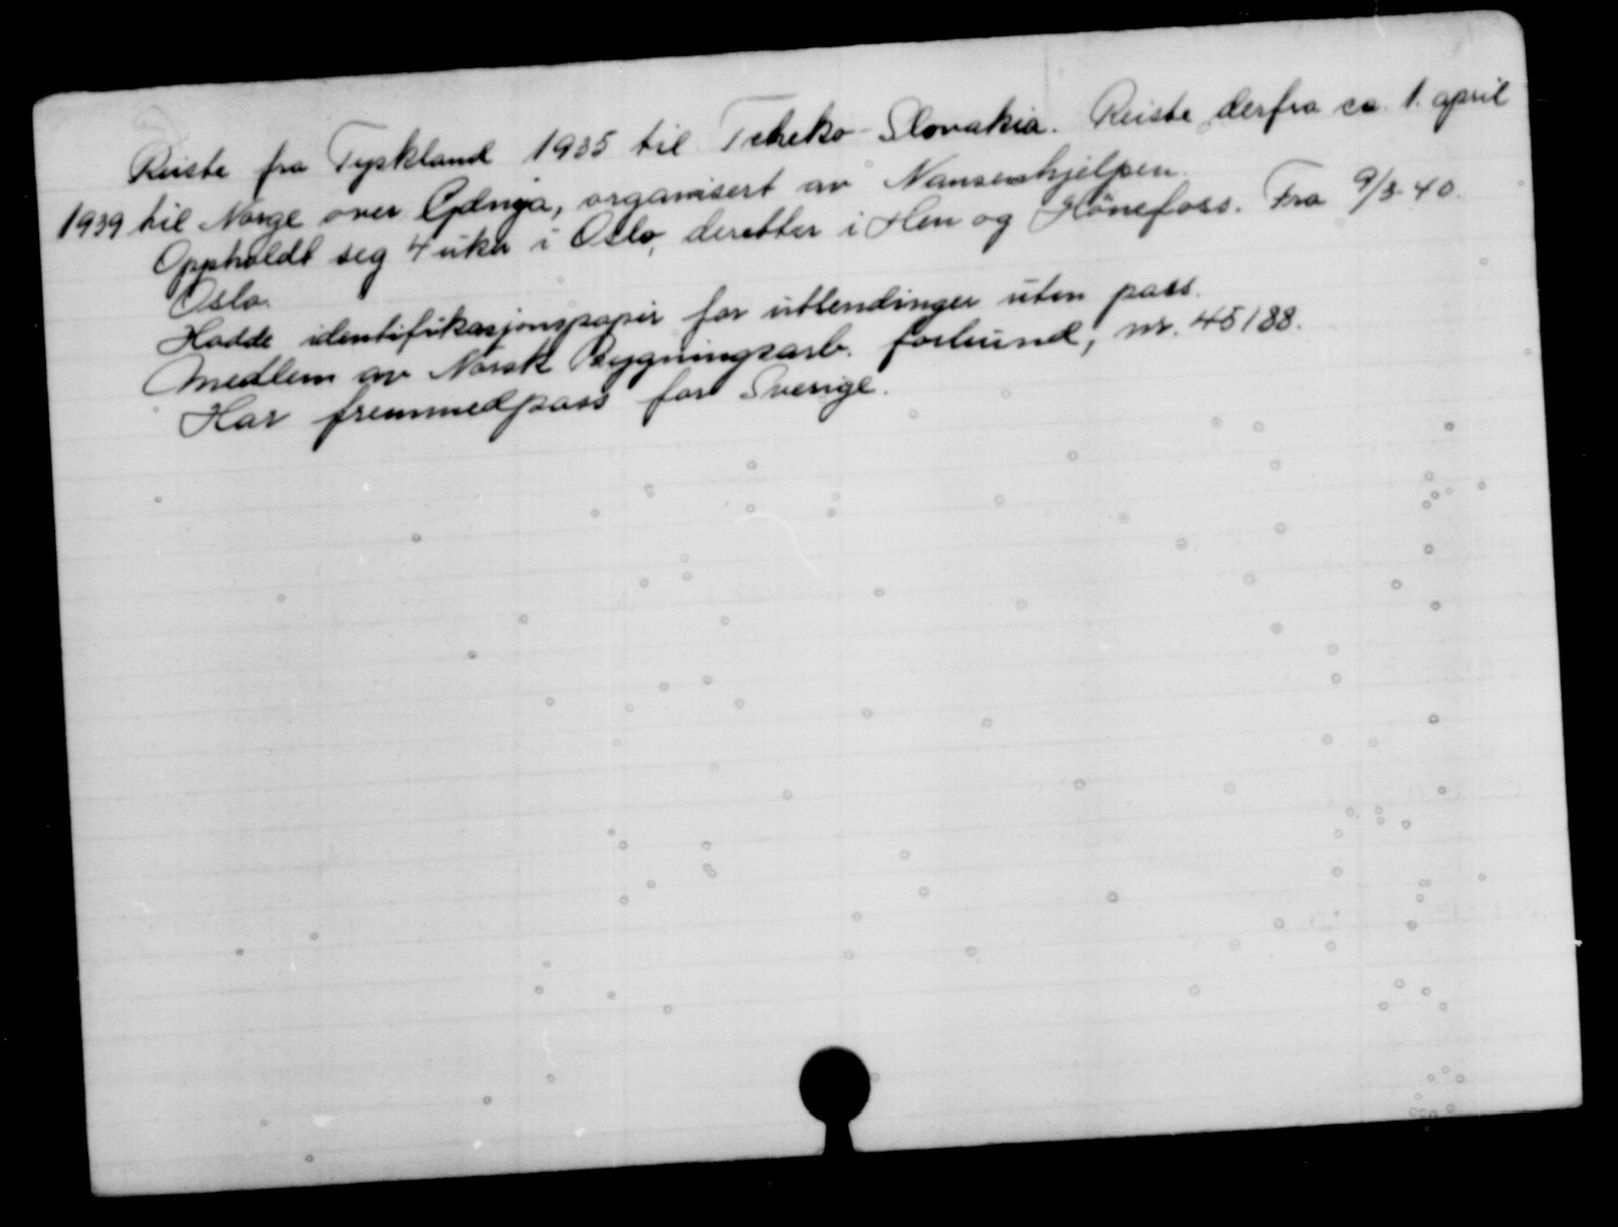 Reiste fra Tyskland 1935 til Tcheko-Slovakia. Reiste derfra ca. 1. april
1939 til Norge over Gdynja, organisert av Nansenshjelpen.
Oppholdt seg 4 uker i Oslo, deretter i Hen og Hönefoss. Fra 9/3-40.
Oslo.
Hadde identifikasjonspapir for utlendinger uten pass.
Medlem av Norsk Bygningsarb. forbund, nr. 45188.
Har fremmedpass for Sverige.